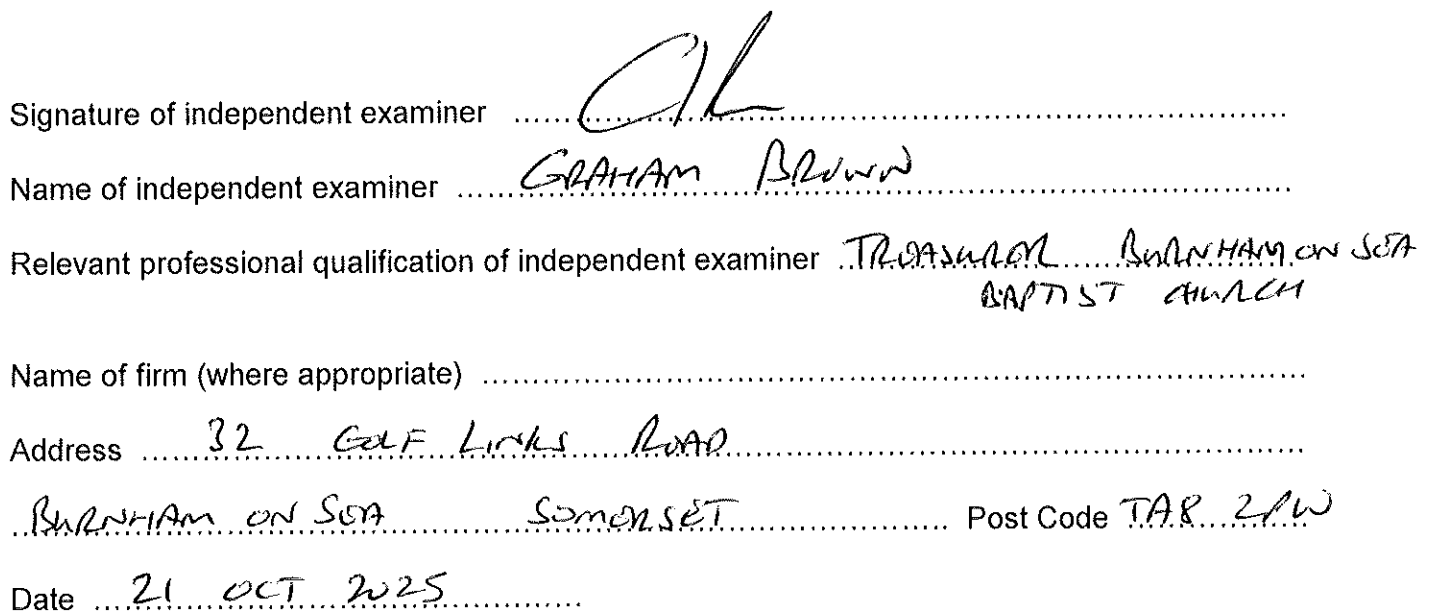 Signature of independent examiner
Name of independent examiner GRAHAM BROWN
Relevant professional qualification of independent examiner TREASURER BURNHAM ON SEA
BAPTIST CHURCH
Name of firm (where appropriate)
Address 32 GOLF LINKS ROAD
BURNHAM ON SEA SOMERSET Post Code TA8 2PW
Date 21 OCT 2025